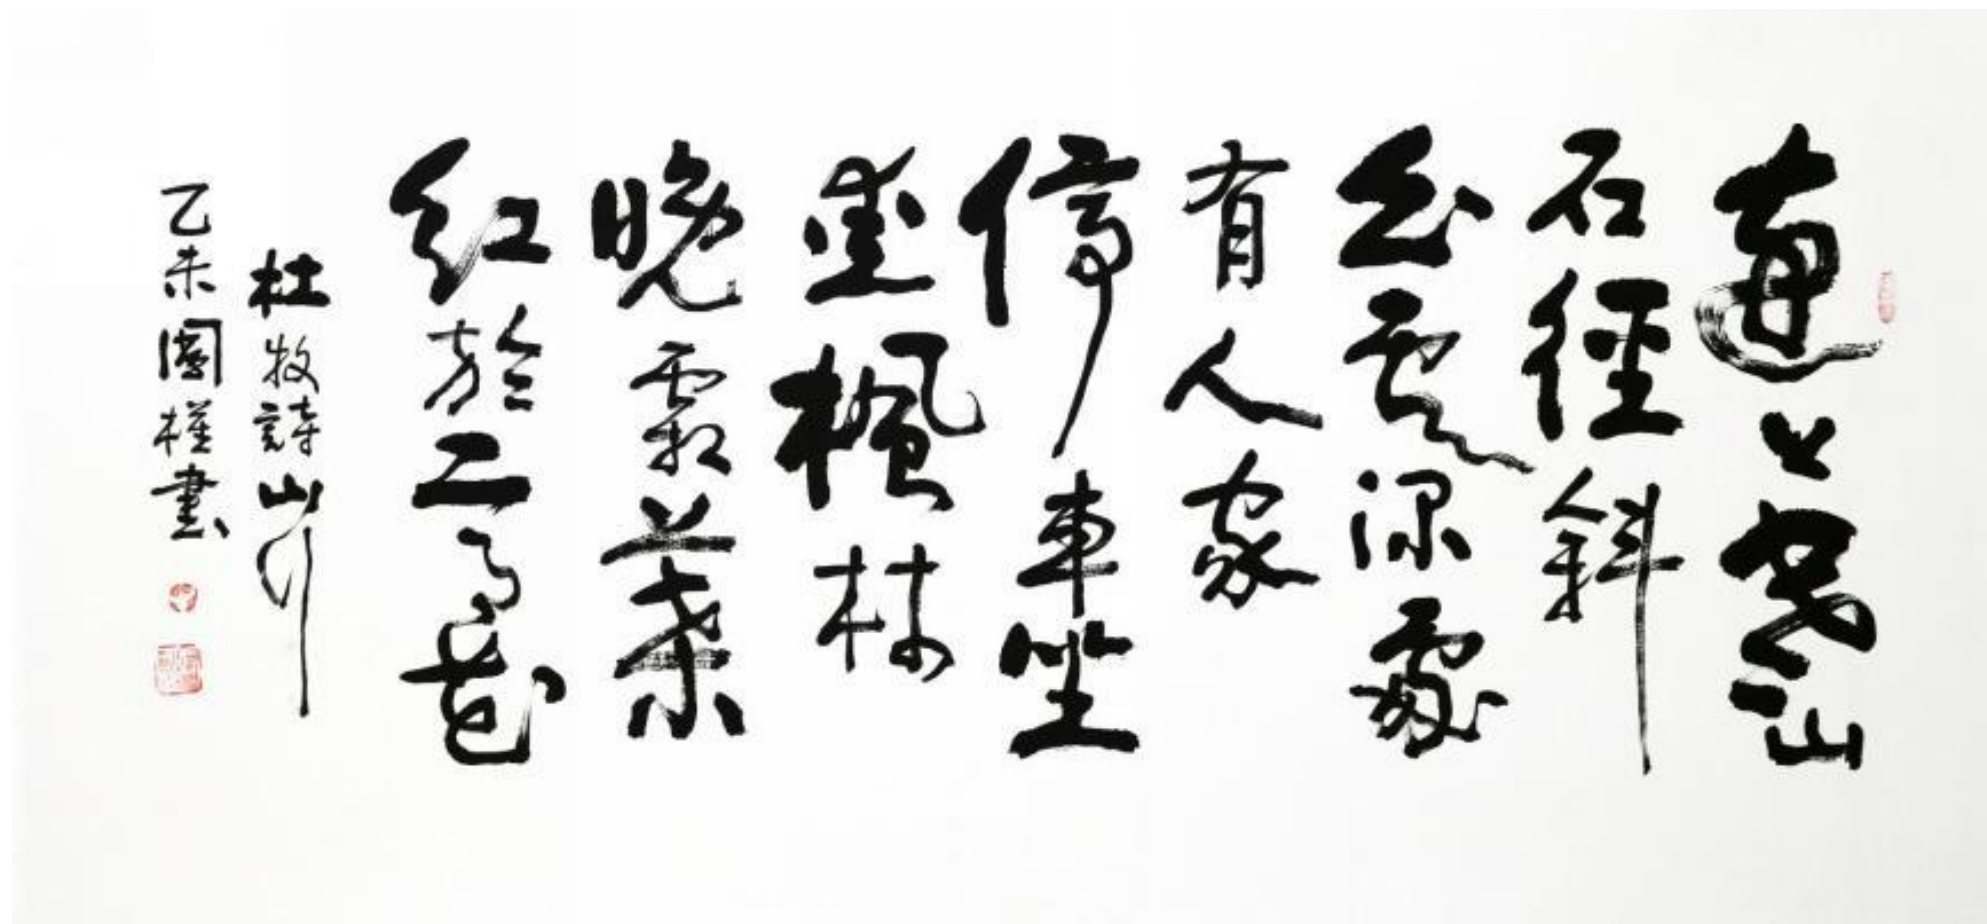 遠上寒山
石徑斜
白雲深處
有人家
停車坐
愛楓林
晚霜葉
紅於二月花
杜牧詩山行
乙未國權書